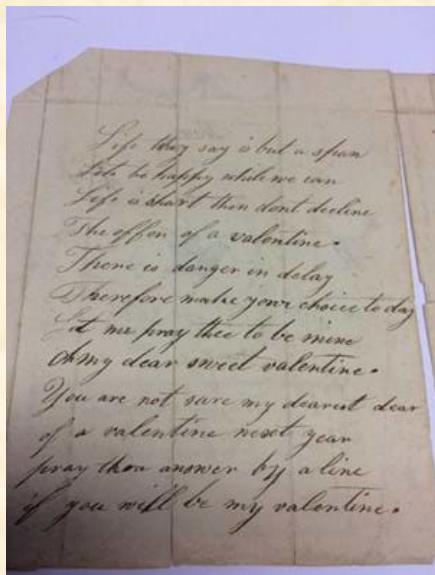 Life they say is but a span
Lets be happy while we can
Life is short then dont decline
The offer of a valentine.
There is danger in delay
Therefore make your choice to day
Let me pray thee to be mine
Oh my dear sweet valentine.
You are not sure my dearest dear
of a valentine next year
pray then answer by a line
if you will be my valentine.